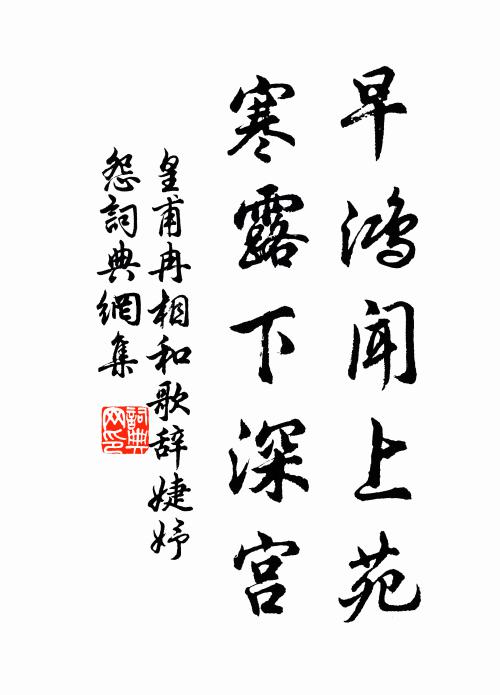 早鸿闻上苑
寒露下深宫
皇甫冉相和歌辞婕妤
怨詞典網集
詞典网印